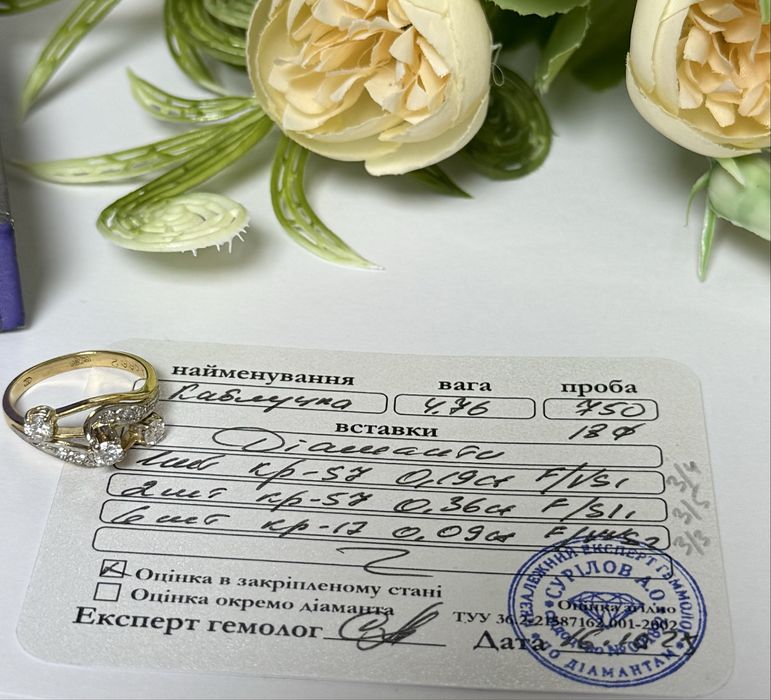 найменування вага проба
Каблучка 4,76 750
вставки 18к
Діаманти
1шт кр-57 0,19ct F/VS1 3/4
2шт кр-57 0,36ct F/SI1 3/5
6шт кр-17 0,09ct F/VVS2 3/3
Оцінка в закріпленому стані
Оцінка окремо діаманта
Оцінка згідно
Експерт гемолог ТУУ 36.2-21587162.001-2002
Дата 16.10.24
НЕЗАЛЕЖНИЙ ЕКСПЕРТ ГЕММОЛОГ
СУРІЛОВ А.О.
ПО ДІАМАНТАМ